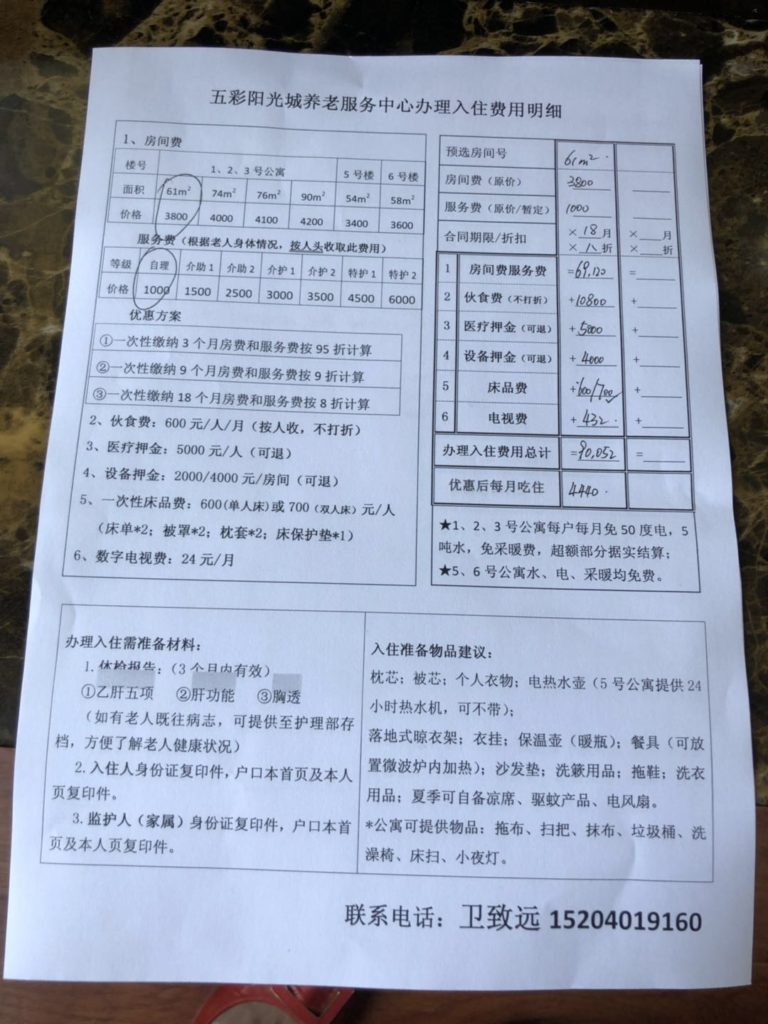 五彩阳光城养老服务中心办理入住费用明细
1、房间费
楼号 1、2、3号公寓 5号楼 6号楼
面积 61m² 74m² 76m² 90m² 54m² 58m²
价格 3800 4000 4100 4200 3400 3600
服务费（根据老人身体情况，按人头收取此费用）
等级 自理 介助1 介助2 介护1 介护2 特护1 特护2
价格 1000 1500 2500 3000 3500 4500 6000
优惠方案
①一次性缴纳3个月房费和服务费按95折计算
②一次性缴纳9个月房费和服务费按9折计算
③一次性缴纳18个月房费和服务费按8折计算
2、伙食费：600元/人/月（按人收，不打折）
3、医疗押金：5000元/人（可退）
4、设备押金：2000/4000元/房间（可退）
5、一次性床品费：600(单人床)或700（双人床）元/人
（床单*2；被罩*2；枕套*2；床保护垫*1）
6、数字电视费：24元/月
预选房间号 61m²
房间费（原价） 3800
服务费（原价/暂定） 1000
合同期限/折扣 ×18月 ×___月
×八折 ×___折
1 房间费服务费 =69,120 =
2 伙食费（不打折） +10800 +
3 医疗押金（可退） +5000 +
4 设备押金（可退） +4000 +
5 床品费 +600/700 +
6 电视费 +432 +
办理入住费用总计 =90,052 =
优惠后每月吃住 4440
★1、2、3号公寓每户每月免50度电，5
吨水，免采暖费，超额部分据实结算；
★5、6号公寓水、电、采暖均免费。
办理入住需准备材料：
1.体检报告：（3个月内有效）
①乙肝五项 ②肝功能 ③胸透
（如有老人既往病志，可提供至护理部存
档，方便了解老人健康状况）
2.入住人身份证复印件，户口本首页及本人
页复印件。
3.监护人（家属）身份证复印件，户口本首
页及本人页复印件。
入住准备物品建议：
枕芯；被芯；个人衣物；电热水壶（5号公寓提供24
小时热水机，可不带）；
落地式晾衣架；衣挂；保温壶（暖瓶）；餐具（可放
置微波炉内加热）；沙发垫；洗簌用品；拖鞋；洗衣
用品；夏季可自备凉席、驱蚊产品、电风扇。
*公寓可提供物品：拖布、扫把、抹布、垃圾桶、洗
澡椅、床扫、小夜灯。
联系电话：卫致远 15204019160